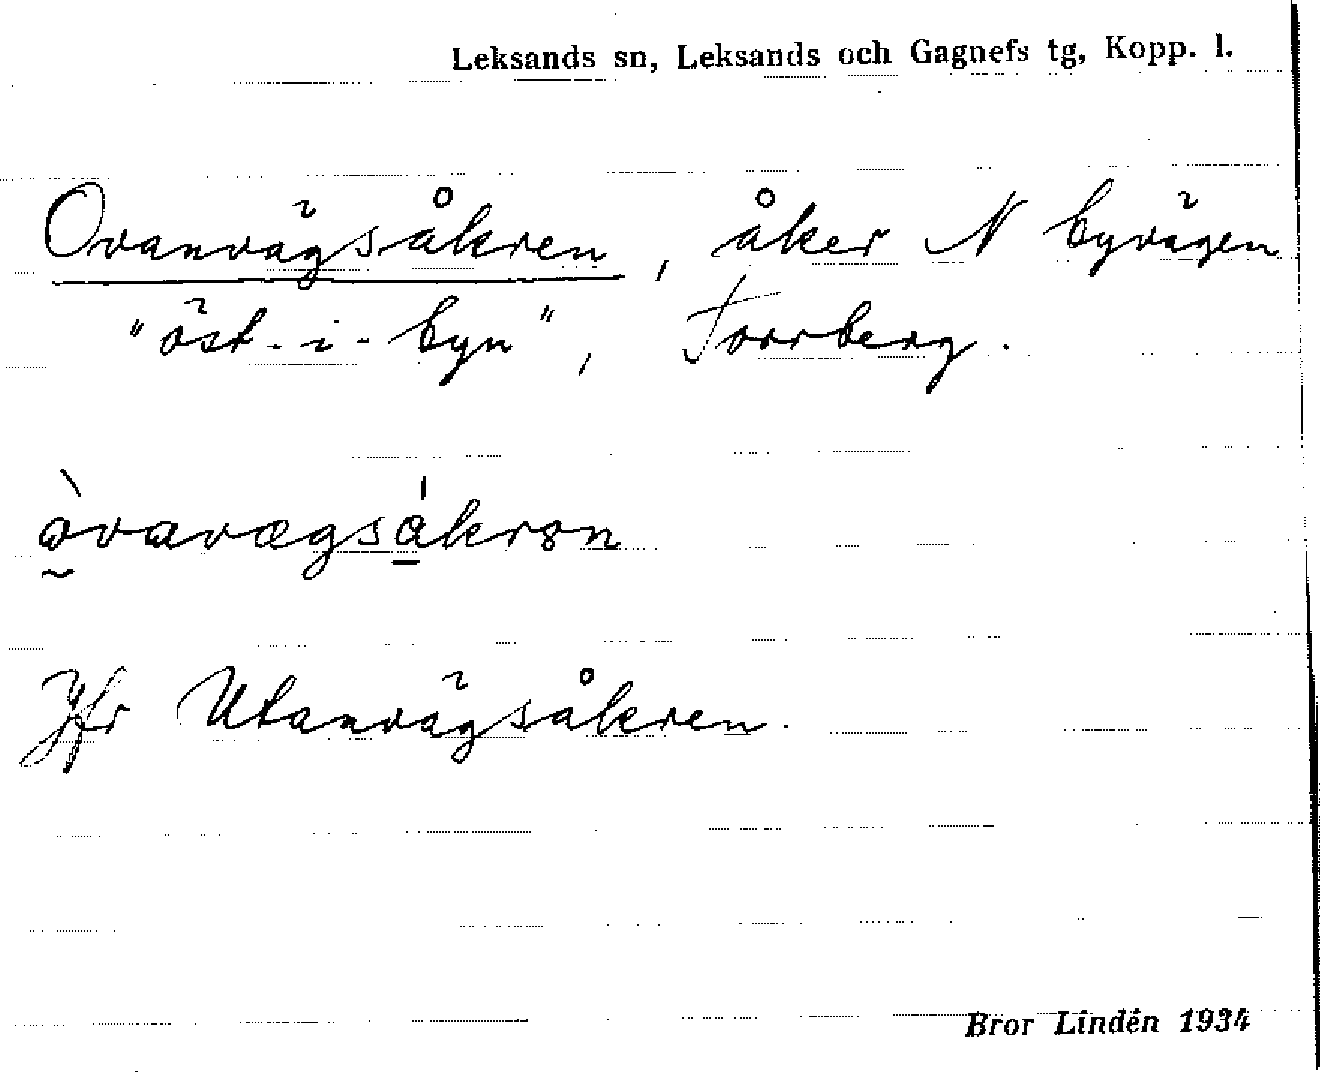 Leksands sn, Leksands och Gagnefs tg, Kopp. l.
Ovanvägsåkren, åker N byvägen
"öst-i-byn", Torrberg.
òvavægsákrən
Jfr Utanvägsåkren.
Bror Lindén 1934